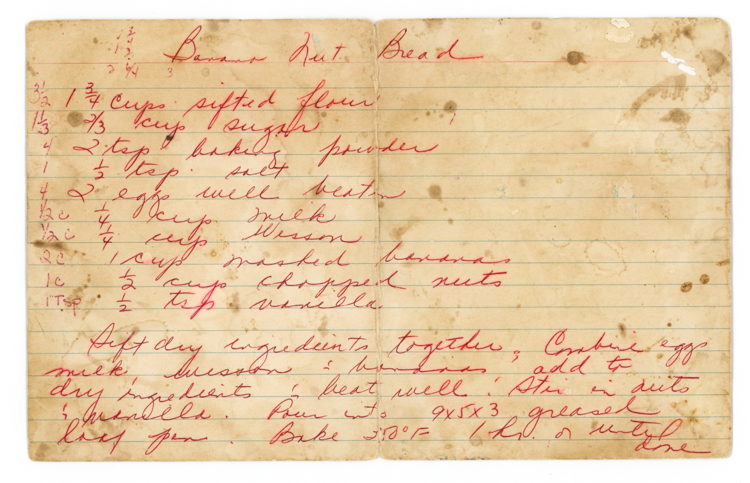 Banana Nut Bread
3 1/2 1 3/4 cups sifted flour
1 1/3 2/3 cup sugar
4 2 tsp baking powder
1 1/2 tsp. salt
4 2 eggs well beaten
1/2 c 1/4 cup milk
1/2 c 1/4 cup Wesson
2c 1 cup mashed bananas
1c 1/2 cup chopped nuts
1 Tsp 1/2 tsp vanilla
Sift dry ingredients together. Combine eggs
milk, wesson & bananas add to
dry ingredients & beat well. Stir in nuts
& vanilla. Pour into 9x5x3 greased
loaf pan. Bake 350°F 1 hr. or until
done